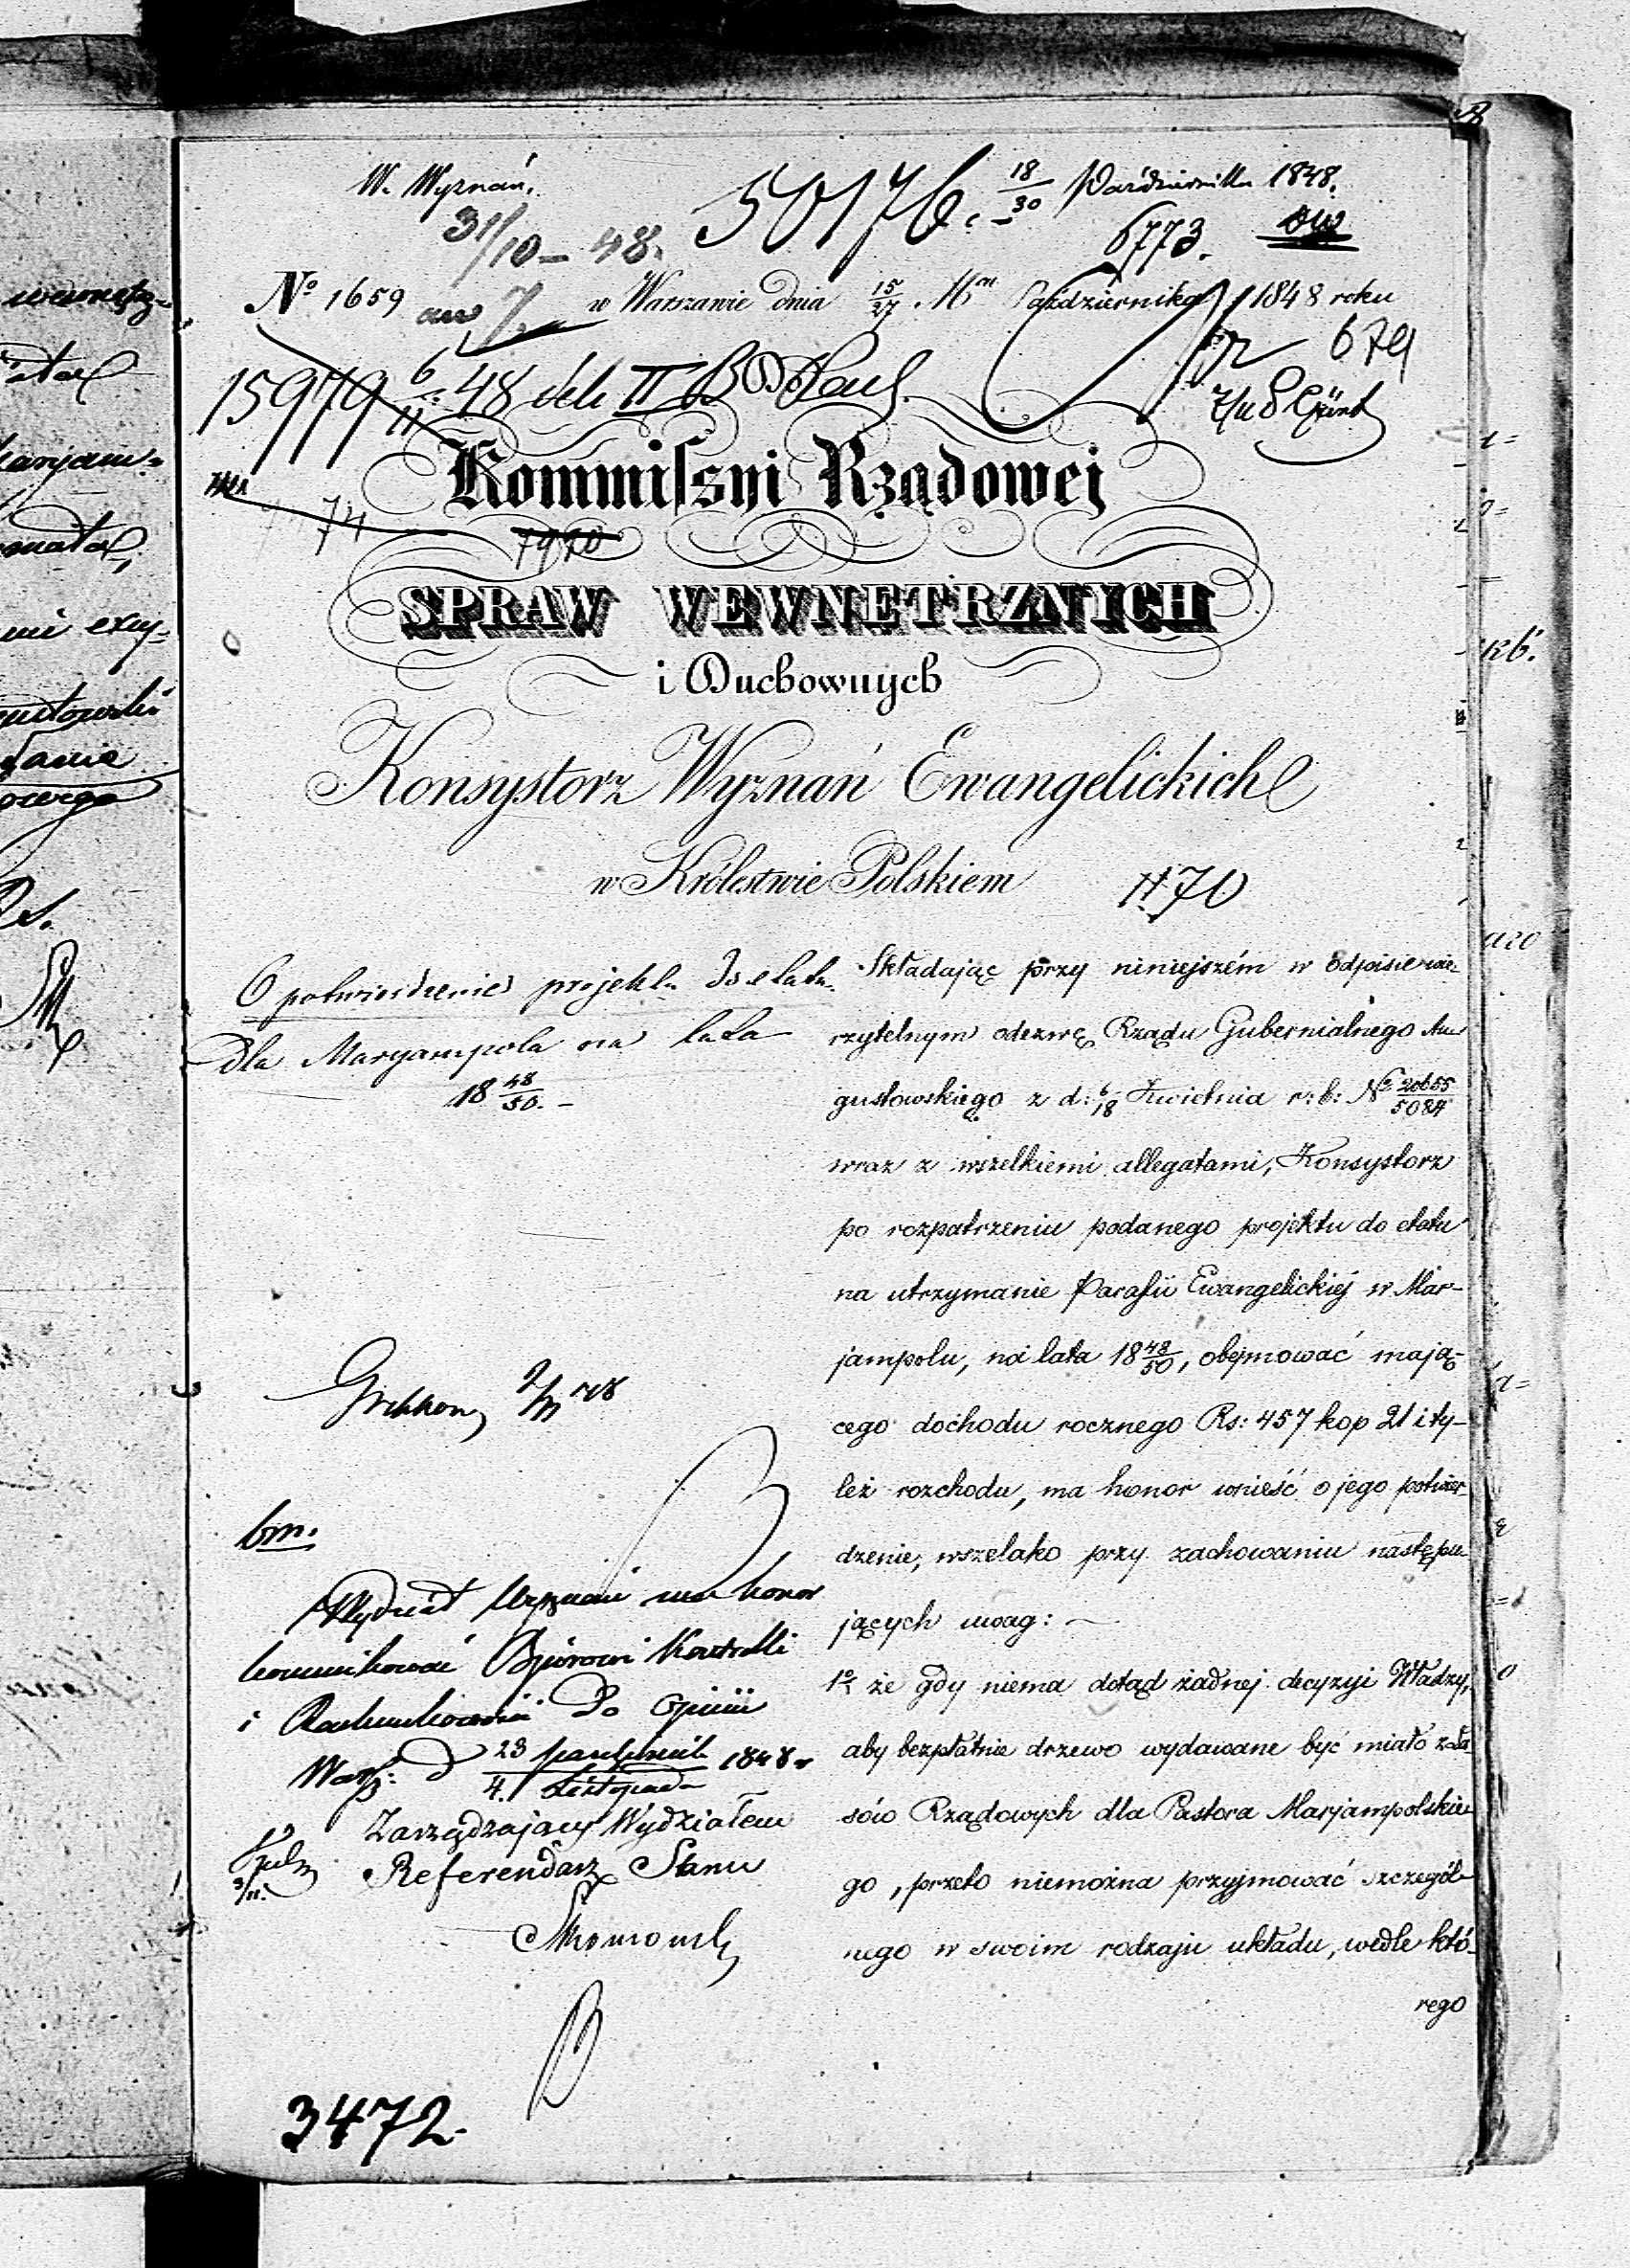 W. Wyznań.
50176. 18/30 Października 1848.
31/10 – 48.
6773.
№ 1659
w Warszawie dnia 15/27 Mca Października 1848 roku
679
15979 6/11 48 II
Kommissyi Rządowej
74
7920
SPRAW WEWNĘTRZNYCH
i Duchownych
Konsystorz Wyznań Ewangelickich
w Królestwie Polskiem
№ 70
O potwierdzenie projektu do etatu
dla Maryampola na lata
18 48/50. –
Składając przy niniejszém w odpisie wie-
rzytelnym odezwę Rządu Gubernialnego Au-
gustowskiego z d: 6/18 Kwietnia r: b: № 20655/5084
wraz z wszelkiemi allegatami, Konsystorz
po rozpatrzeniu podanego projektu do etatu
na utrzymanie Parafii Ewangelickiéj w Mar-
jampolu, na lata 18 48/50, obejmować mają-
cego dochodu rocznego Rs: 457 kop 21 i ty-
leż rozchodu, ma honor wnieść o jego potwier-
dzenie, wszelako przy zachowaniu następu-
jących uwag: –
1o że gdy niema dotąd żadnej decyzyi Władzy,
aby bezpłatnie drzewo wydawane być miało z la-
sów Rządowych dla Pastora Marjampolskie-
go, przeto niemożna przyjmować szczegól-
nego w swoim rodzaju układu, wedle któ-
rego
bm.
Wydział Wyznań ma honor
kommunikować Bjórowi Kontrolli
i Rachunkowości do opinii
Warsz: d 23 Październik / 4 Listopada 1848 r
Zarządzający Wydziałem
Referendarz Stanu
3472.